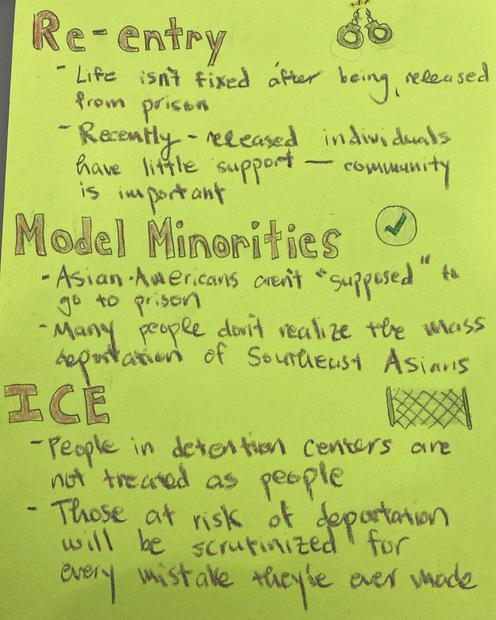 Re-entry
- Life isn't fixed after being released
from prison
- Recently-released individuals
have little support — community
is important
Model Minorities
- Asian-Americans aren't "supposed" to
go to prison
- Many people don't realize the mass
deportation of Southeast Asians
ICE
- People in detention centers are
not treated as people
- Those at risk of deportation
will be scrutinized for
every mistake they've ever made